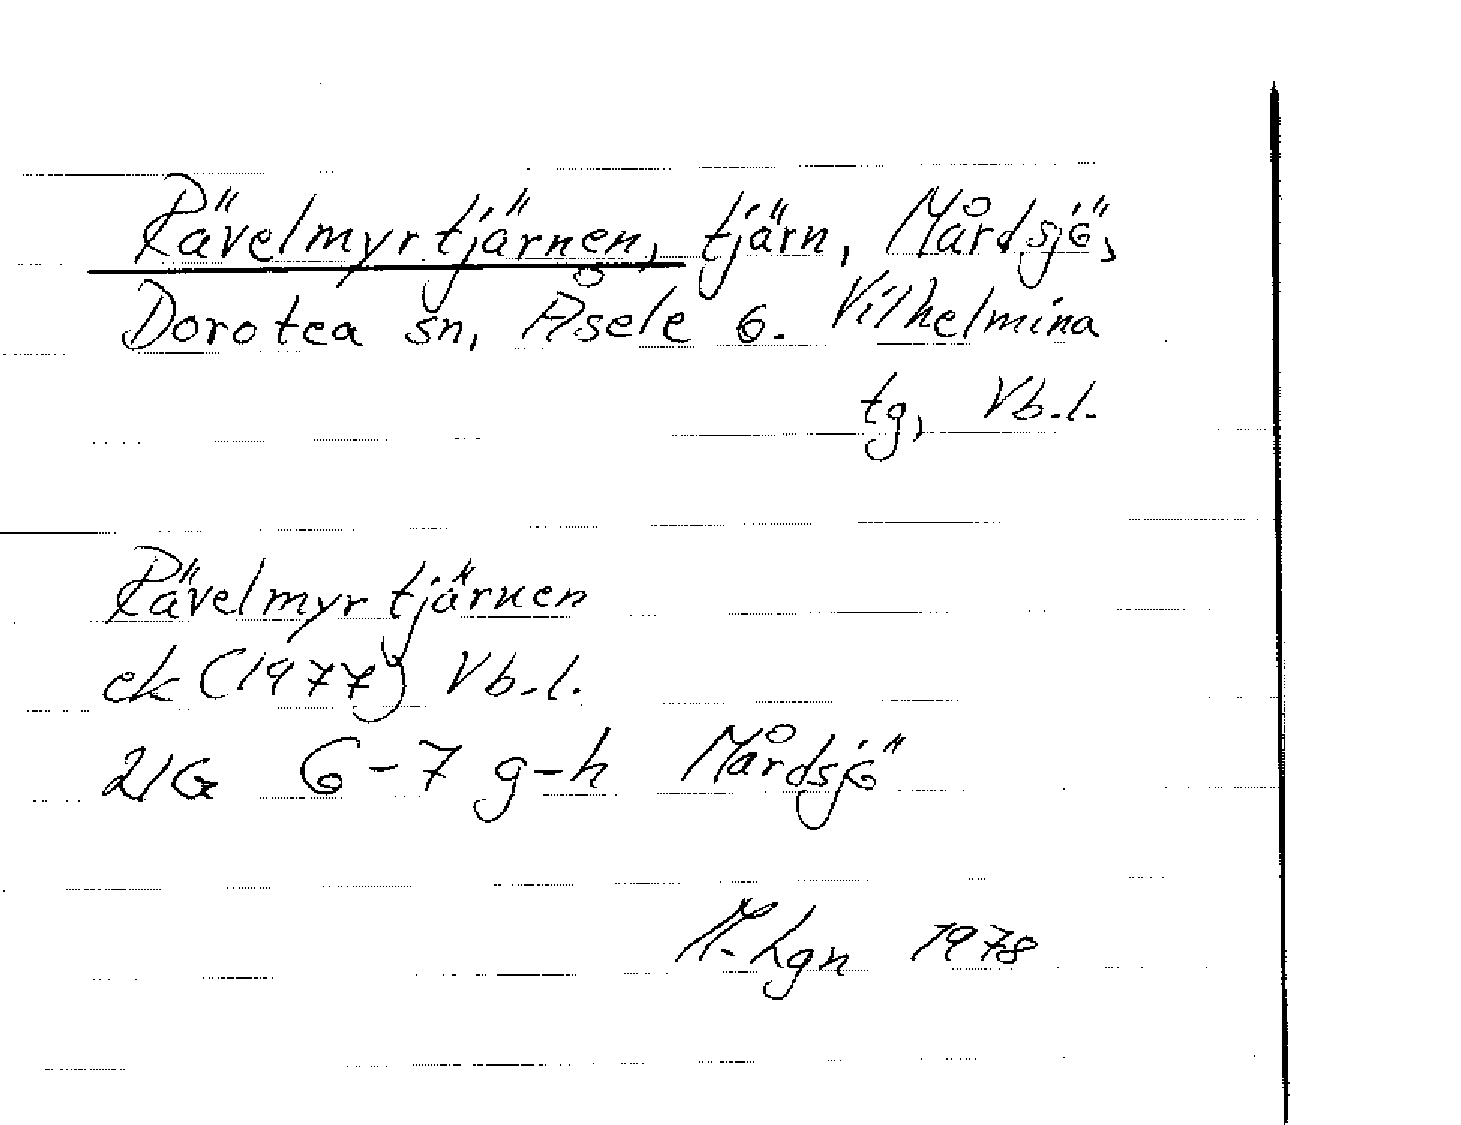 Rävelmyrtjärnen, tjärn, Mårdsjö,
Dorotea sn, Åsele o. Vilhelmina
tg, Vb.l.
Rävelmyrtjärnen
ek (1977) Vb.l.
21G 6-7 g-h Mårdsjö
M-Lgn 1978